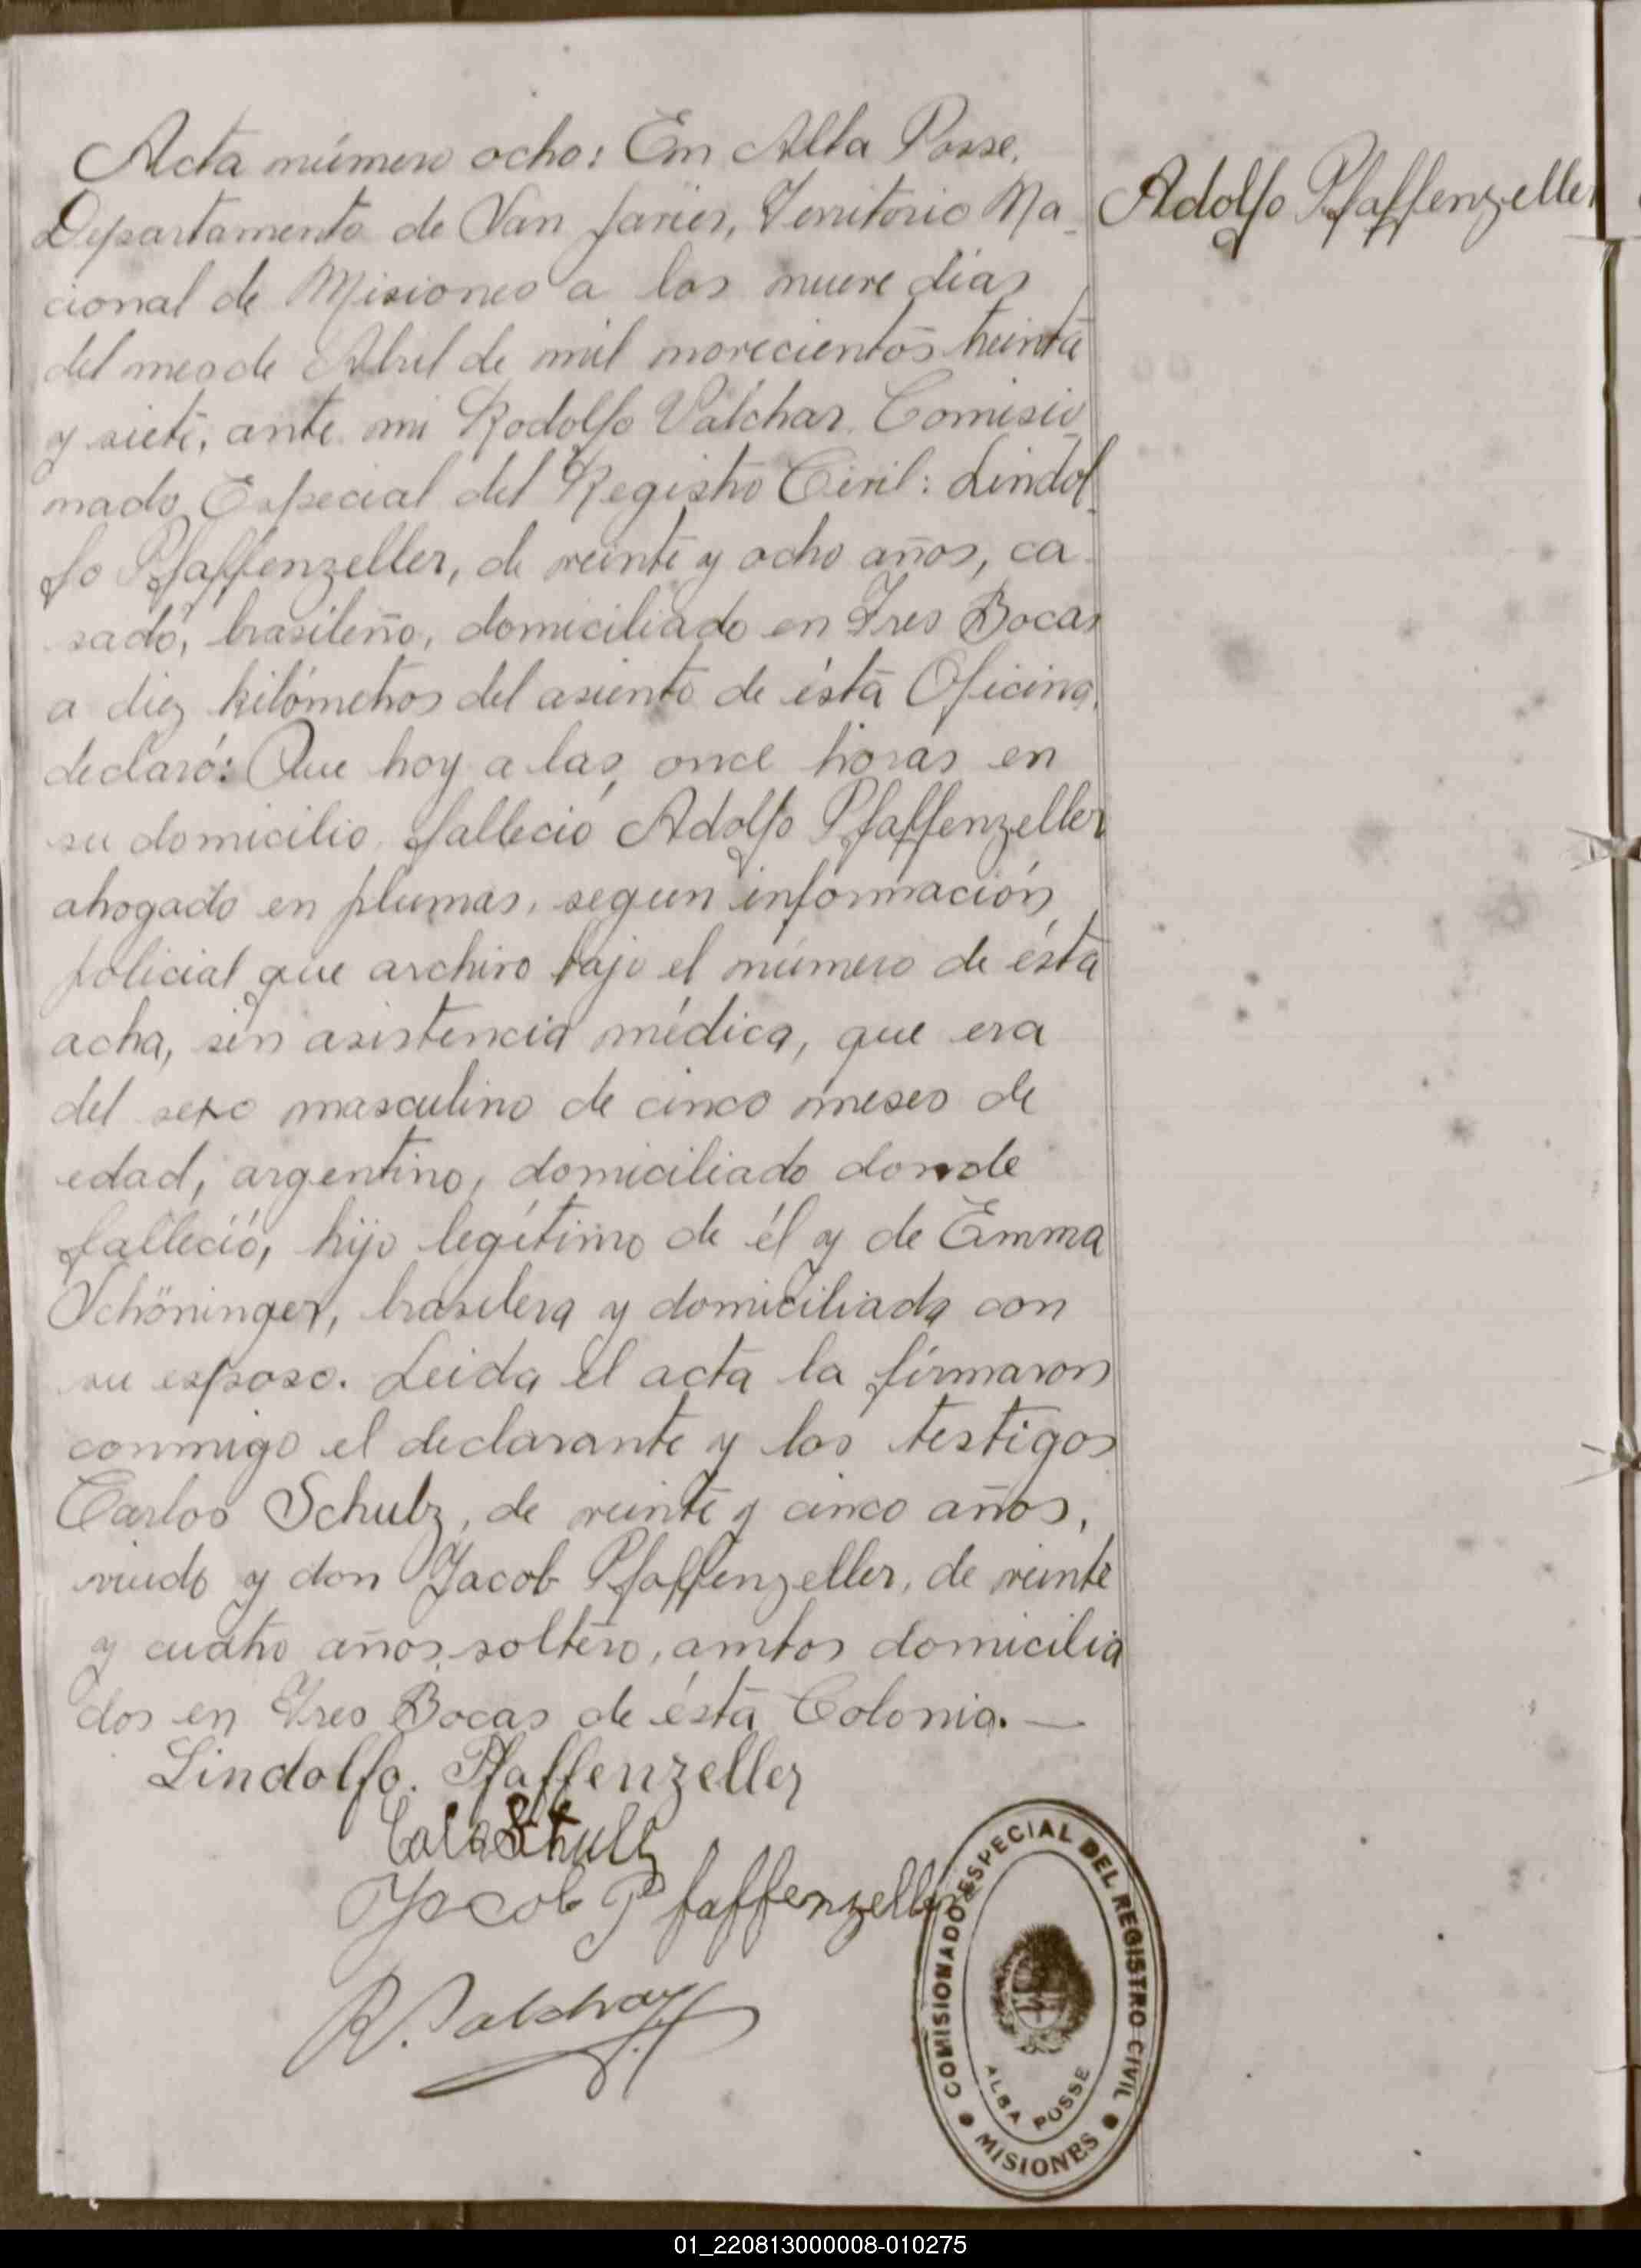 Acta número ocho: En Alba Posse,
Departamento de San Javier, Territorio Na-
cional de Misiones a los nueve dias
del mes de Abril de mil novecientos treinta
y siete, ante mi Rodolfo Valchar Comisio-
nado Especial del Registro Civil: Lindol-
fo Pfaffenzeller, de veinte y ocho años, ca-
sado, brasileño, domiciliado en Tres Bocas
a diez kilómetros del asiento de ésta Oficina,
declaró: Que hoy a las, once horas en
su domicilio, falleció Adolfo Pfaffenzeller
ahogado en plumas, segun información
policial que archivo bajo el número de ésta
acta, sin asistencia médica, que era
del sexo masculino de cinco meses de
edad, argentino, domiciliado donde
falleció, hijo legítimo de él y de Emma
Schöninger, brasilera y domiciliada con
su esposo. Leida el acta la firmaron
conmigo el declarante y los testigos
Carlos Schulz, de veinte y cinco años,
viudo y don Jacob Pfaffenzeller, de veinte
y cuatro años, soltero, ambos domicilia
dos en Tres Bocas de ésta Colonia.—
Adolfo Pfaffenzeller
Lindolfo. Pfaffenzeller
Schulz
Jacob Pfaffenzeller
R. Valchar
COMISIONADO ESPECIAL DEL REGISTRO CIVIL
ALBA POSSE
MISIONES
01_220813000008-010275